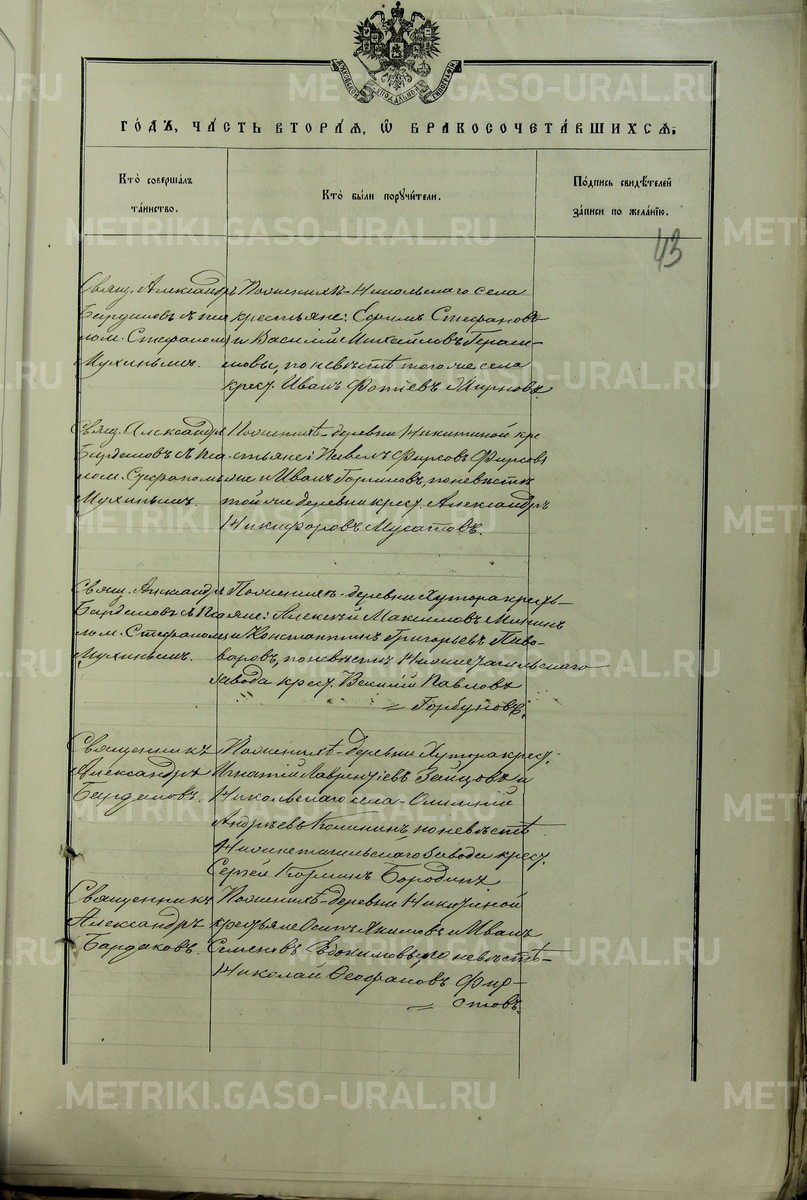 ГОДЪ, ЧАСТЬ ВТОРАЯ, Ѡ БРАКОСОЧЕТАВШИХСЯ,
Кто совершалъ
таинство.
Кто были поручители.
Подпись свидѣтелей
записи по желанію.
43
Свящ. Александръ
съ пса
лом. Стефаномъ
Мухинымъ.
По женихѣ - Никольскаго села
крестьяне: Ефимъ Стефановъ
и Василій Михайловъ Гераси-
мовы, по невѣстѣ того же села
крест. Иванъ Фотіевъ
Свящ. Александръ
съ пса
лом. Стефаномъ
Мухинымъ.
По женихѣ - деревни Никитиной кре
стьяне: Павелъ Фирсовъ Фирсовъ
и Иванъ по невѣстѣ
той же деревни крест. Александръ
Никифоровъ Мусатовъ.
Свящ. Александръ
съ пса
лом. Стефаномъ
Мухинымъ.
По женихѣ - деревни Хутора кресть-
яне: Алексѣй Максимовъ
и Константинъ Григорьевъ Пиво-
варовъ, по невѣстѣ Нижнетагильскаго
завода крест. Павловъ
Горбуновъ.
Священникъ
Александръ
По женихѣ - деревни Хутора крест.
Игнатій Лаврентіевъ Зайцовъ и
Никольскаго села -
Андреевъ по невѣстѣ
Нижнетагильскаго завода крест.
Сергѣй Бородинъ
Священникъ
Александръ
Бардаковъ.
По женихѣ - деревни Никитиной
крестьяне Осипъ Якимовъ и Иванъ
Семеновъ Евдокимовы, по невѣстѣ -
Николай Ѳеофановъ Фир-
совъ.
METRIKI.GASO-URAL.RU